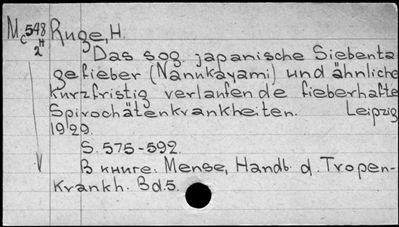 Mc 548 Ruge, H.
2н
Das sog. japanische Siebenta
gefieber (Nanukayami) und ähnliche
kurzfristig verlaufende fieberhafte
Spirochätenkrankheiten. Leipzig
1929.
S. 575-592.
В книге. Mense, Handb. d. Tropen-
krankh. Bd. 5.